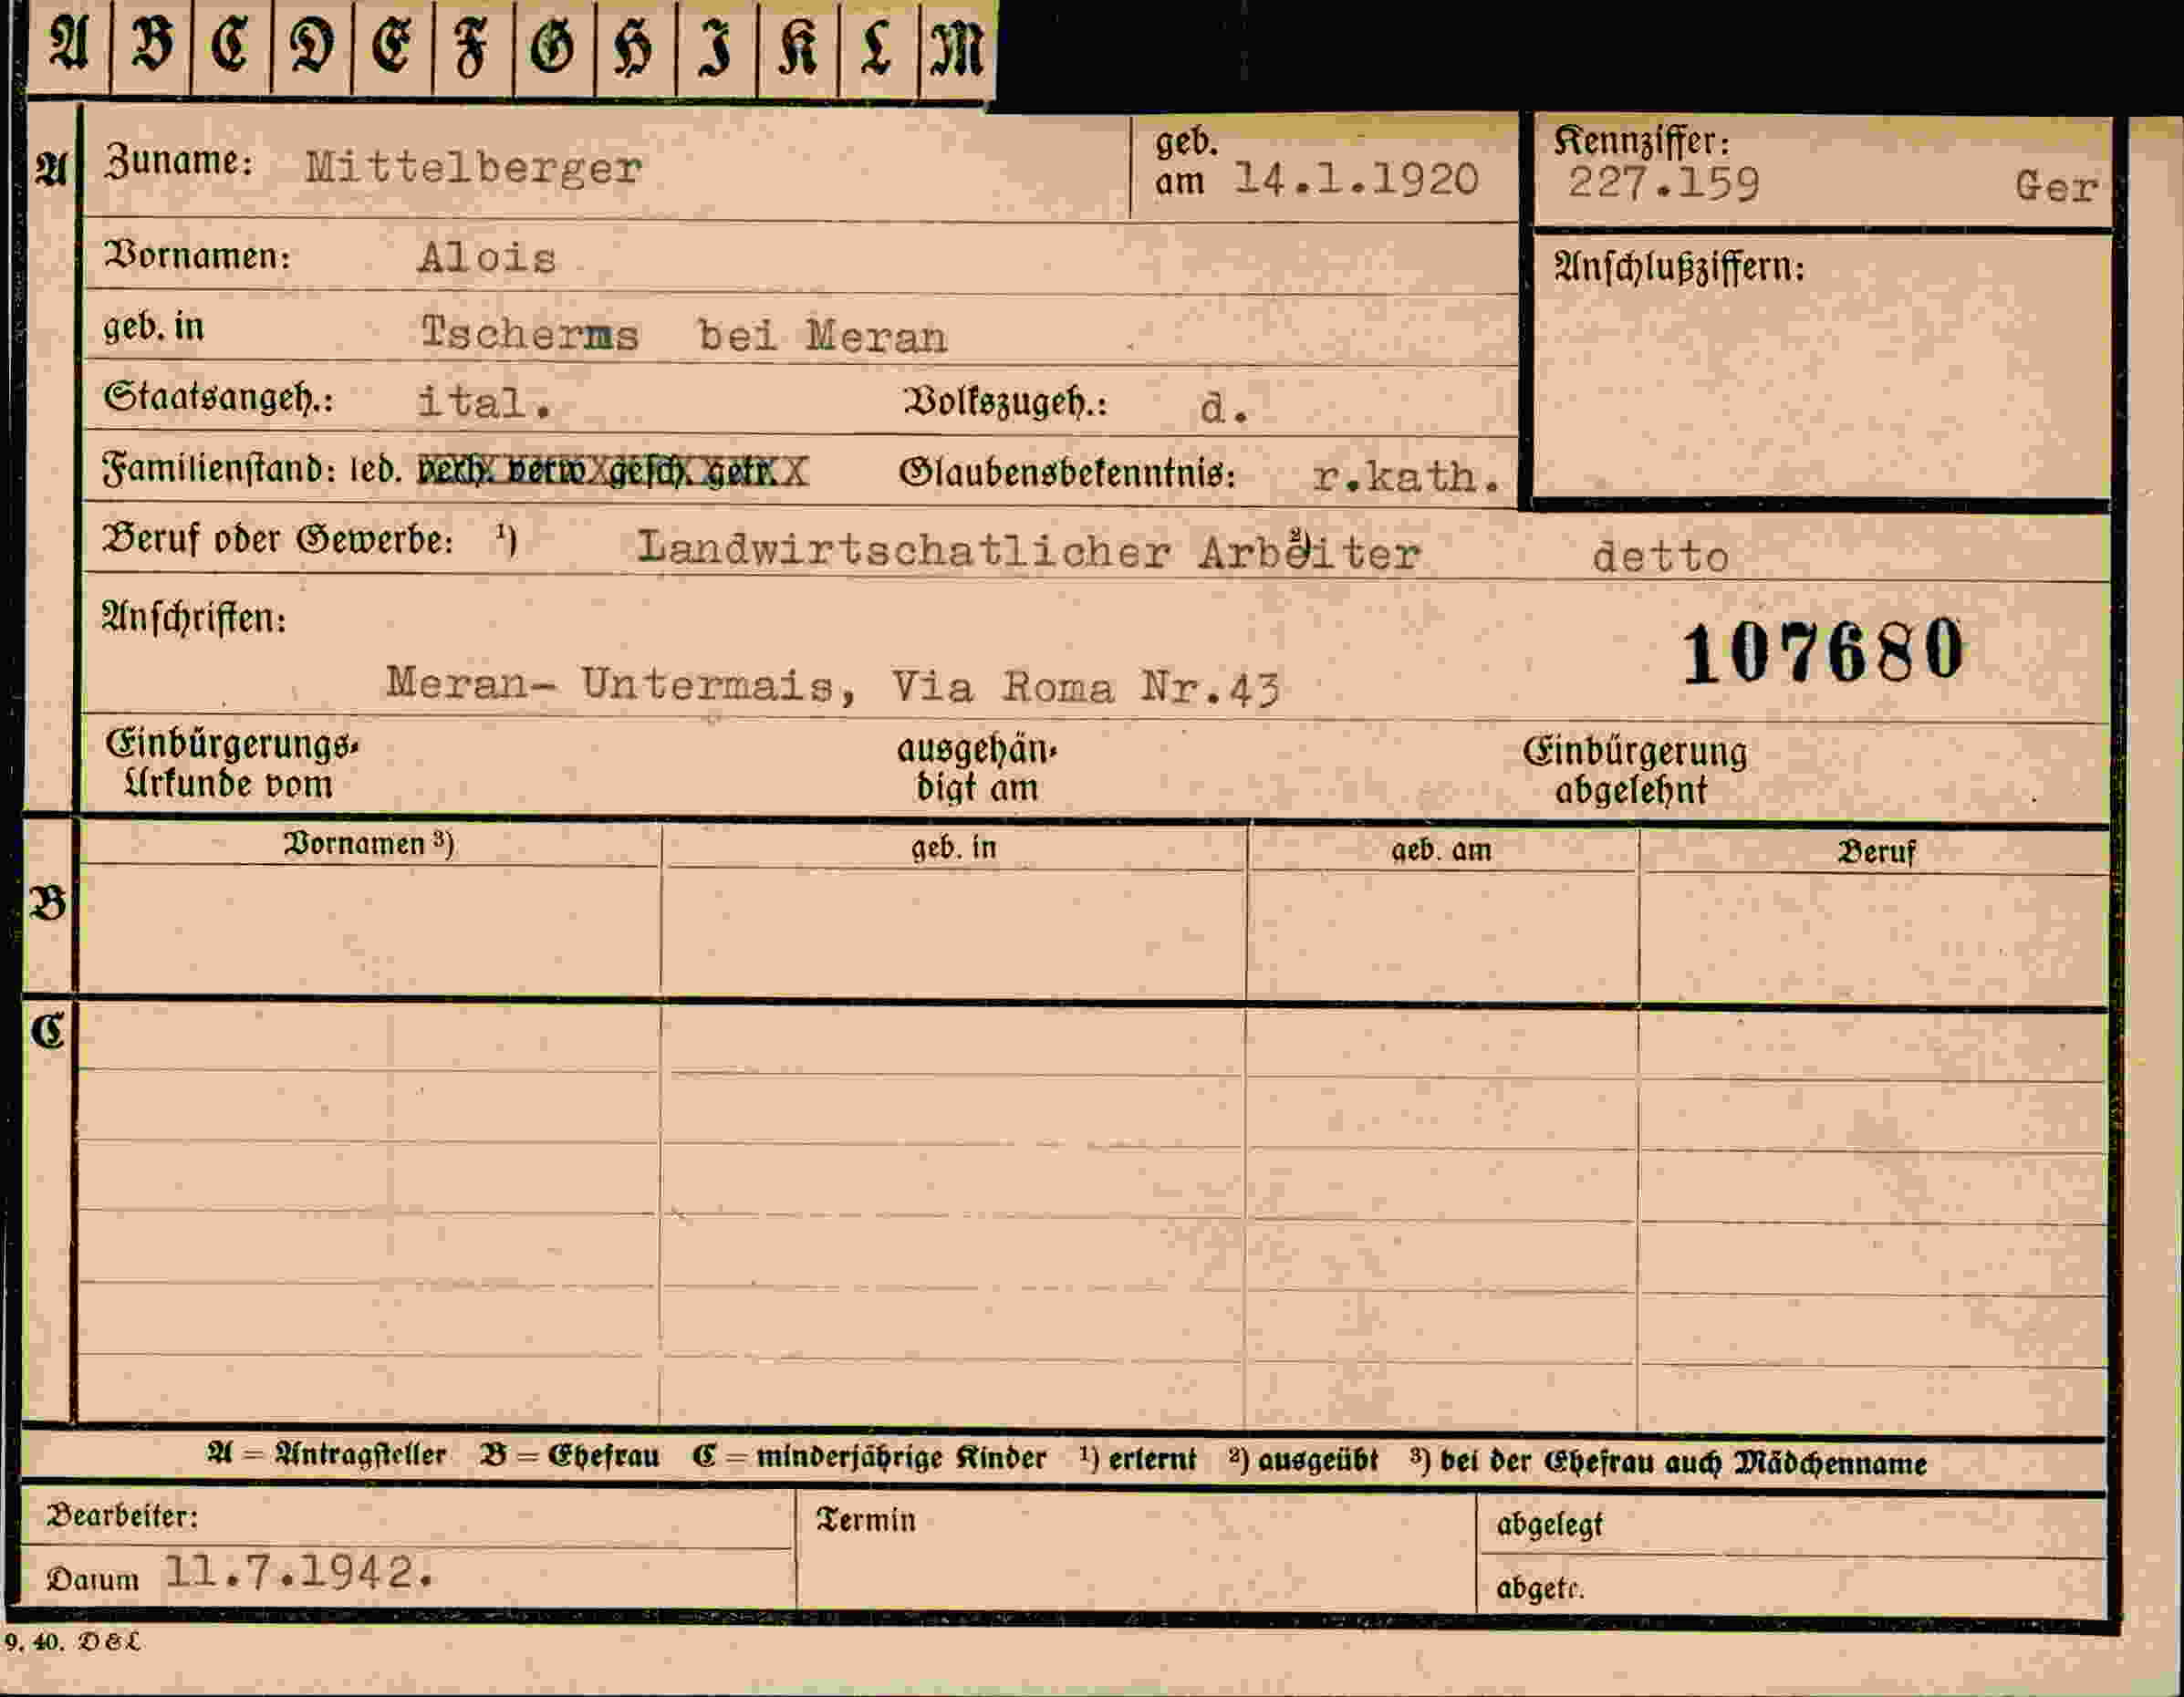 A B C D E F G H I K L M
A Zuname: Mittelberger geb. am 14.1.1920 Kennziffer: 227.159 Ger
Vornamen: Alois Anschlußziffern:
geb. in Tscherms bei Meran
Staatsangeh.: ital. Volkszugeh.: d.
Familienstand: led. verh. verw. gesch. getr. Glaubensbekenntnis: r.kath.
Beruf oder Gewerbe: ¹) Landwirtschatlicher Arbeiter ²) detto
Anschriften:
107680
Meran- Untermais, Via Roma Nr.43
Einbürgerungs- ausgehän- Einbürgerung
Urkunde vom digt am abgelehnt
Vornamen ³) geb. in geb. am Beruf
B
C
A = Antragsteller B = Ehefrau C = minderjährige Kinder ¹) erlernt ²) ausgeübt ³) bei der Ehefrau auch Mädchenname
Bearbeiter: Termin abgelegt
Datum 11.7.1942. abgetr.
9. 40. D&L